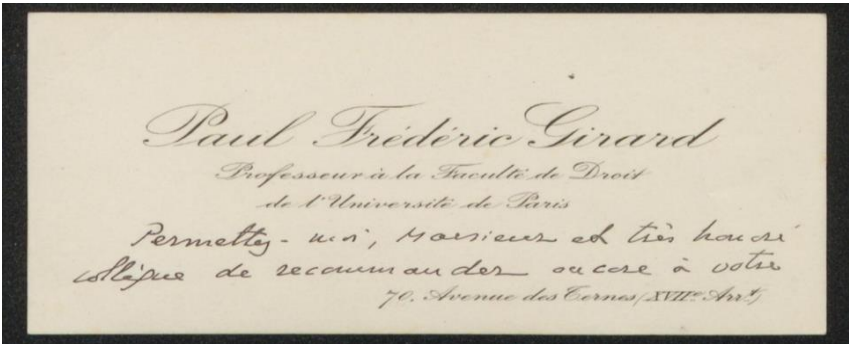 Paul Frédéric Girard
Professeur à la Faculté de Droit
de l'Université de Paris
Permettez-moi, Monsieur et très honoré
collègue de recommander encore à votre
70. Avenue des Ternes (XVIIe Arrt)